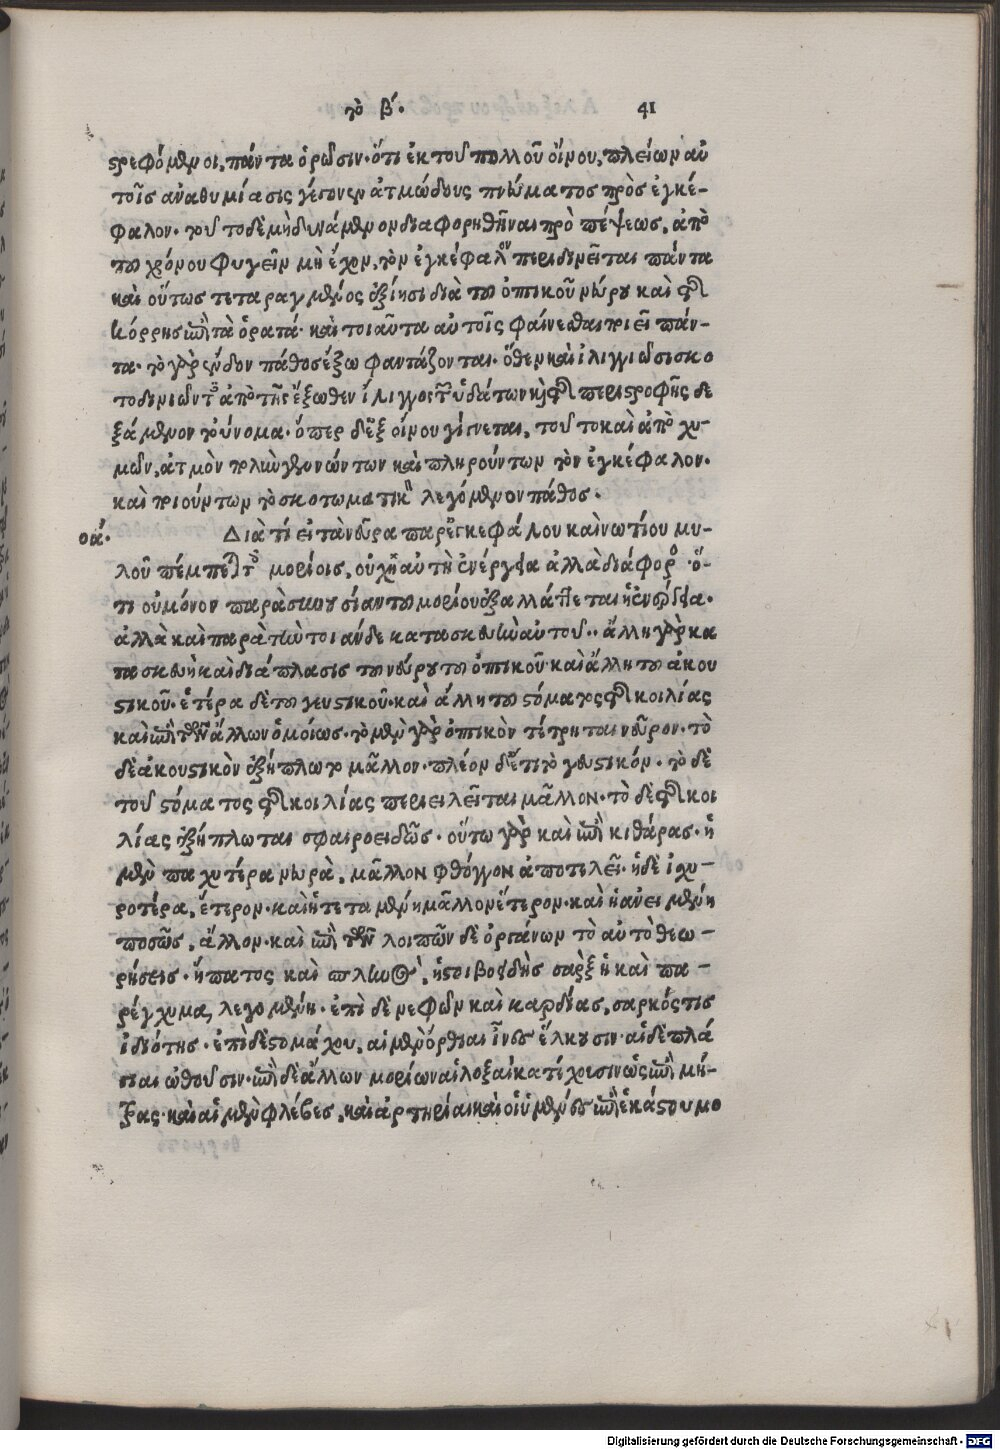 τὸ β΄. 41
στρεφόμενοι, πάντα ὁρῶσιν· ὅτι ἐκ τοῦ πολλοῦ οἴνου, πλείων αὐ
τοῖς ἀναθυμίασις γέγονεν ἀτμώδους πνεύματος πρὸς ἐγκέ-
φαλον· τοῦτο δὲ μὴ δυνάμενον διαφορηθῆναι πρὸ πέψεως, ἀπὸ
τοῦ χρόνου φυγεῖν μὴ ἔχον, τὸν ἐγκέφαλον περιδινεῖται πάντα
καὶ οὕτως τεταραγμένος ἐξίησι διὰ τοῦ ὀπτικοῦ νεύρου καὶ τῆς
κόρρης ἐπὶ τὰ ὁρατά· καὶ τοιαῦτα αὐτοῖς φαίνεσθαι ποιεῖ πάν-
τα· τὸ γὰρ ἔνδον πάθος ἔξω φαντάζονται· ὅθεν καὶ ἰλιγγιῶσι σκο
τοδινιῶντες ἀπὸ τῆς ἔξωθεν ἴλιγγος τῶν ὑδάτων καὶ τῆς περιστροφῆς δε
ξάμενον τοὔνομα· ὅπερ δὲ ἐξ οἴνου γίγνεται, τοῦτο καὶ ἀπὸ χυ-
μῶν, ἀτμὸν πολὺν γεννώντων καὶ πληρούντων τὸν ἐγκέφαλον·
καὶ ποιούντων τὸ σκοτωματικὸν λεγόμενον πάθος.
οά. Διὰ τί εἰ τὰ νεῦρα παρ' ἐγκεφάλου καὶ νωτίου μυ-
λοῦ πέμπεται τοῖς μορίοις, οὐχ ἡ αὐτὴ ἐνέργεια ἀλλὰ διάφορος· ὅ-
τι οὐ μόνον παρὰ τὴν οὐσίαν τοῦ μορίου ἐξαλλάττεται ἡ ἐνέργεια·
ἀλλὰ καὶ παρὰ τὴν τοιάνδε κατασκευὴν αὐτοῦ·· ἄλλη γὰρ κα
τασκευὴ καὶ διάπλασις τοῦ νεύρου τοῦ ὀπτικοῦ· καὶ ἄλλη τοῦ ἀκου
στικοῦ· ἑτέρα δὲ τοῦ γευστικοῦ· καὶ ἄλλη τοῦ στόματος τῆς κοιλίας
καὶ ἐπὶ τῶν ἄλλων ὁμοίως· τὸ μὲν γὰρ ὀπτικὸν τέτρηται νεῦρον· τὸ
δὲ ἀκουστικὸν ἐξήπλωτο μᾶλλον· πλέον δὲ ἔτι τὸ γευστικόν· τὸ δὲ
τοῦ στόματος τῆς κοιλίας περιειλεῖται μᾶλλον· τὸ δὲ τῆς κοι
λίας ἐξήπλωται σφαιροειδῶς· οὕτω γὰρ καὶ ἐπὶ κιθάρας· ἡ
μὲν παχυτέρα νευρὰ, μᾶλλον φθόγγον ἀποτελεῖ· ἡ δὲ ἰσχυ-
ροτέρα, ἕτερον· καὶ ἡ τεταμένη μᾶλλον ἕτερον· καὶ ἡ ἀνειμένη
ποσῶς, ἄλλον· καὶ ἐπὶ τῶν λοιπῶν δὲ ὀργάνων τὸ αὐτὸ θεω-
ρήσεις· ἥπατος καὶ πλευρὸς, ἡ στοιβοειδὴς σαρξ ἡ καὶ πα-
ρέγχυμα, λεγομένη· ἐπὶ δὲ νεφῶν καὶ καρδίας, σαρκός τις
ἰδιότης· ἐπὶ δὲ στομάχου, αἱ μὲν ὄρθιαι ἶνες ἕλκουσιν· αἱ δὲ πλά
γιαι ὠθοῦσιν· ἐπὶ δὲ ἄλλων μορίων αἱ λοξαὶ κατέχουσιν ὡς ἐπὶ μή-
τρας· καὶ αἱ μὲν φλέβες, καὶ ἀρτηρίαι καὶ οἱ ὑμένες ἐπὶ ἑκάστου μο
Digitalisierung gefördert durch die Deutsche Forschungsgemeinschaft - DFG